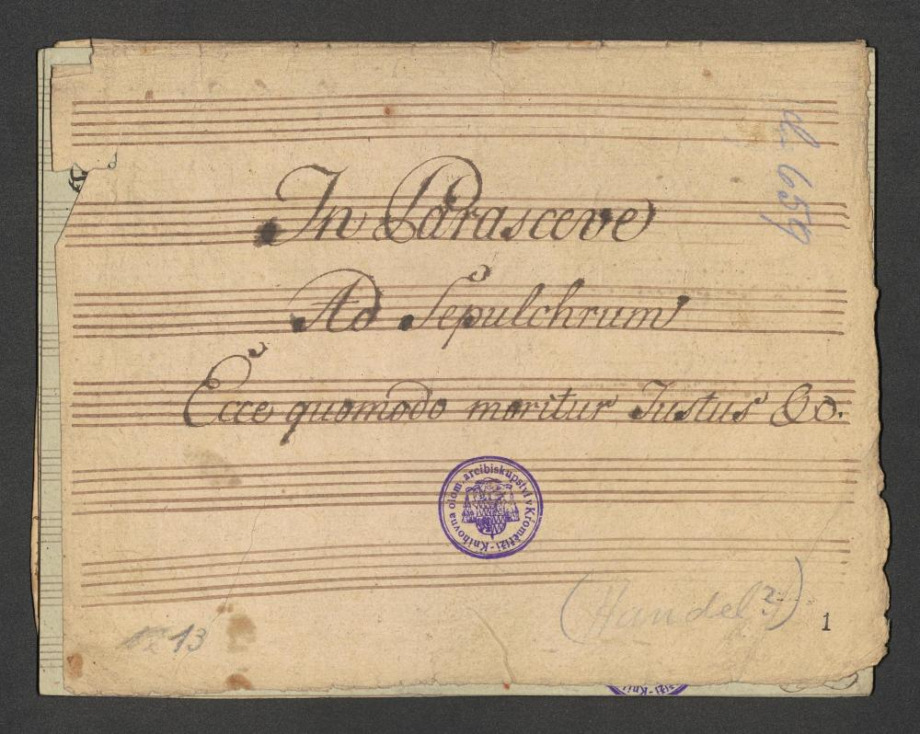 In Parasceve
Ad Sepulchrum
Ecce quomodo moritur Justus &c.
Knihovna olom. arcibiskupství v Kroměříži
(Handel?)
13
1
659